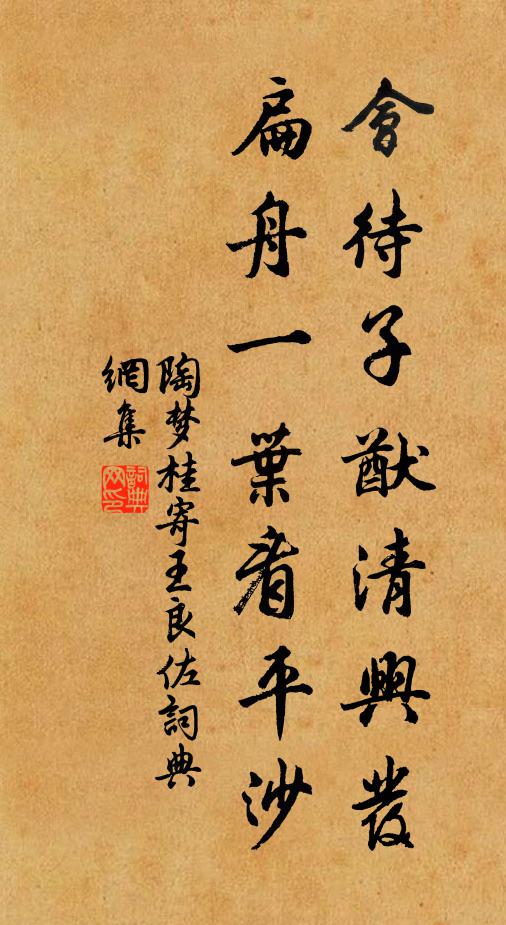 會待子猷清興發
扁舟一葉看平沙
陶梦桂寄王良佐詞典
網集
詞典网印